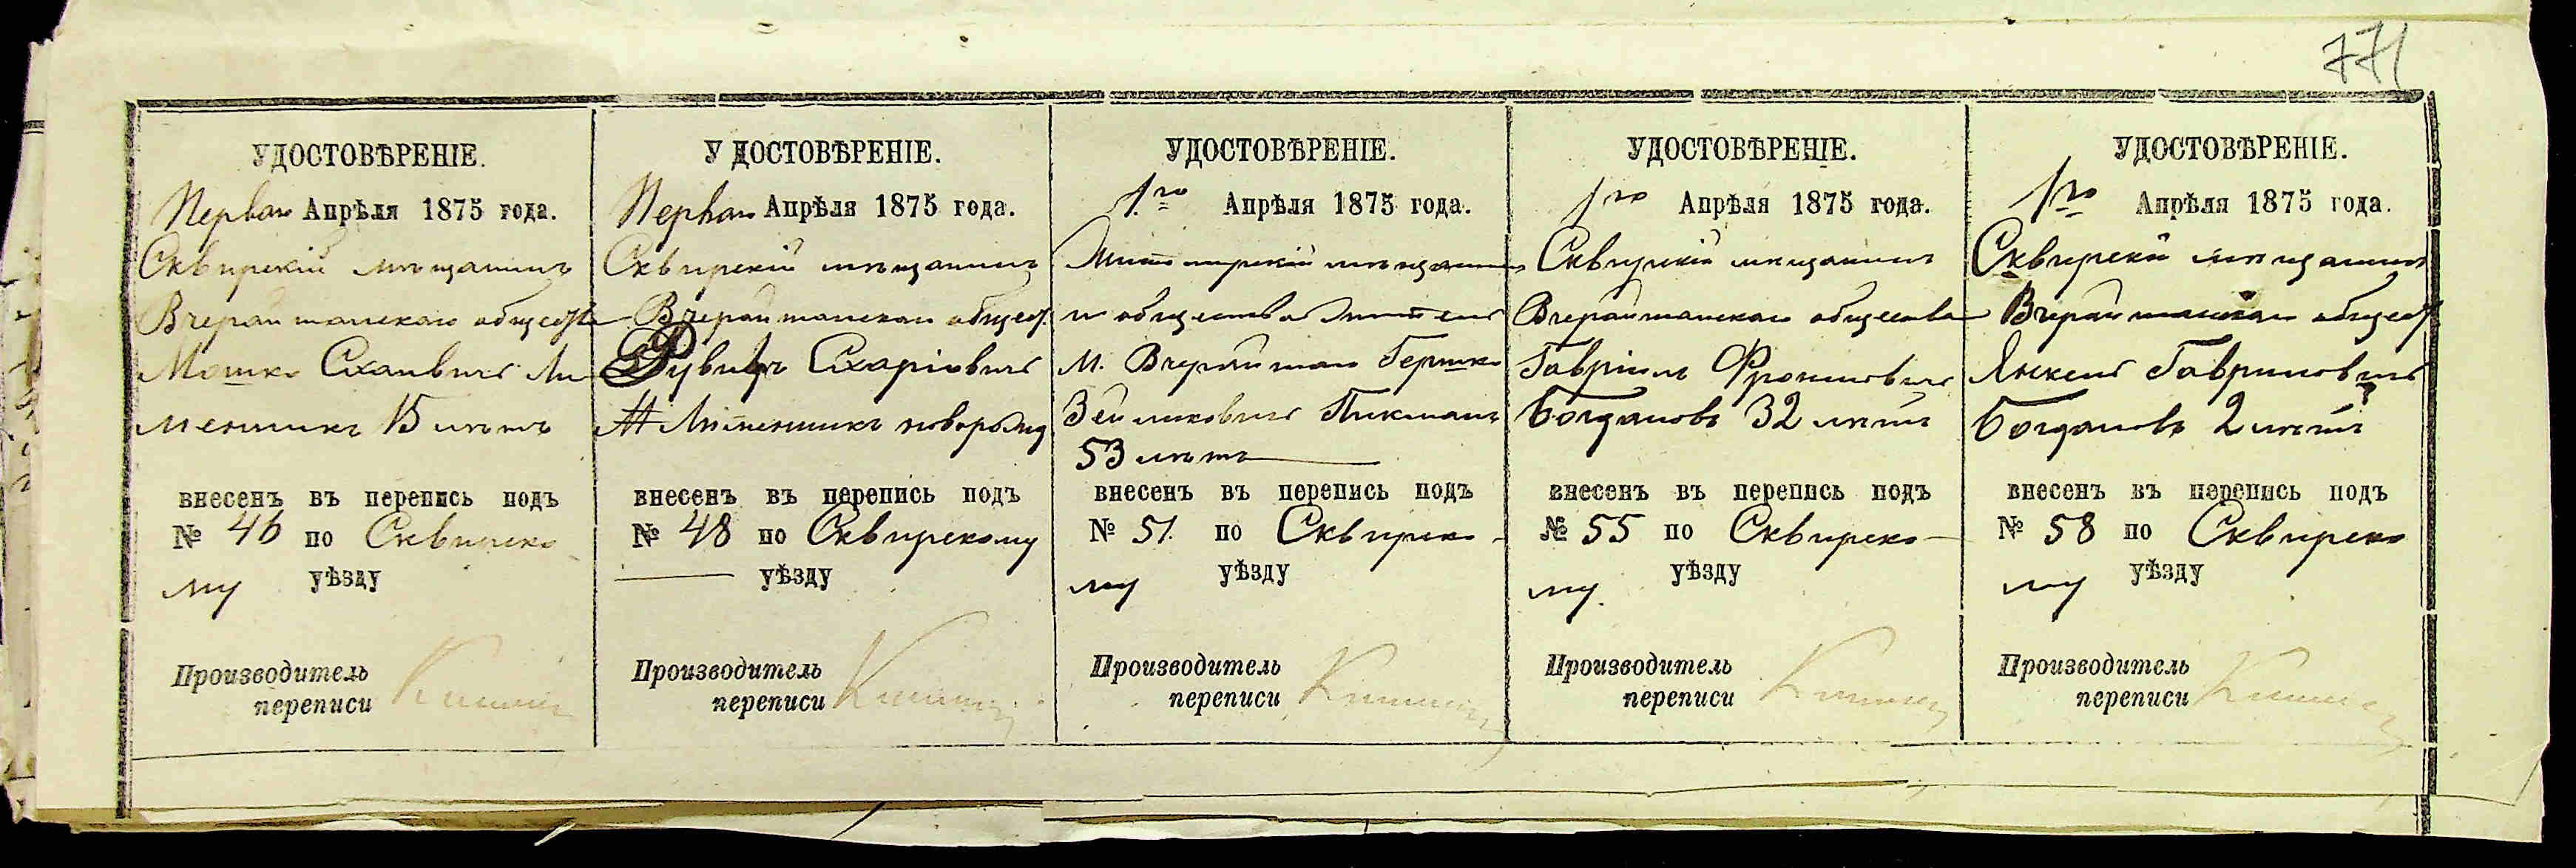 771
УДОСТОВѢРЕНІЕ.
Перваго Апрѣля 1875 года.
Сквирскій мѣщанинъ
Вчерайшанскаго обществ
Мошко Сухаивичъ Ли
менникъ 15 лѣтъ
внесенъ въ перепись подъ
№ 46 по Сквирско
му уѣзду
Производитель
переписи
УДОСТОВѢРЕНІЕ.
Перваго Апрѣля 1875 года.
Сквирскій мѣщанинъ
Вчерайшанскаго общест.
Рувинъ
новорожд
внесенъ въ перепись подъ
№ 48 по Сквирскому
уѣзду
Производитель
переписи
УДОСТОВѢРЕНІЕ.
1го Апрѣля 1875 года.
мѣщанинъ
и общества
м. Вчерайшан Гершко
Зейликовичъ Пикманъ
53 лѣтъ
внесенъ въ перепись подъ
№ 51. по Сквирско
му уѣзду
Производитель
переписи
УДОСТОВѢРЕНІЕ.
1го Апрѣля 1875 года.
Сквирскій мѣщанинъ
Вчерайшанскаго общества
Гавріилъ Фроимовичъ
Богдановъ 32 лѣтъ
внесенъ въ перепись подъ
№ 55 по Сквирско
му. уѣзду
Производитель
переписи
УДОСТОВѢРЕНІЕ.
1го Апрѣля 1875 года.
Сквирскій мѣщанинъ
Вчерайшанскаго общест
Янкель Гавриловичъ
Богдановъ 2 лѣтъ
внесенъ въ перепись подъ
№ 58 по Сквирско
му уѣзду
Производитель
переписи